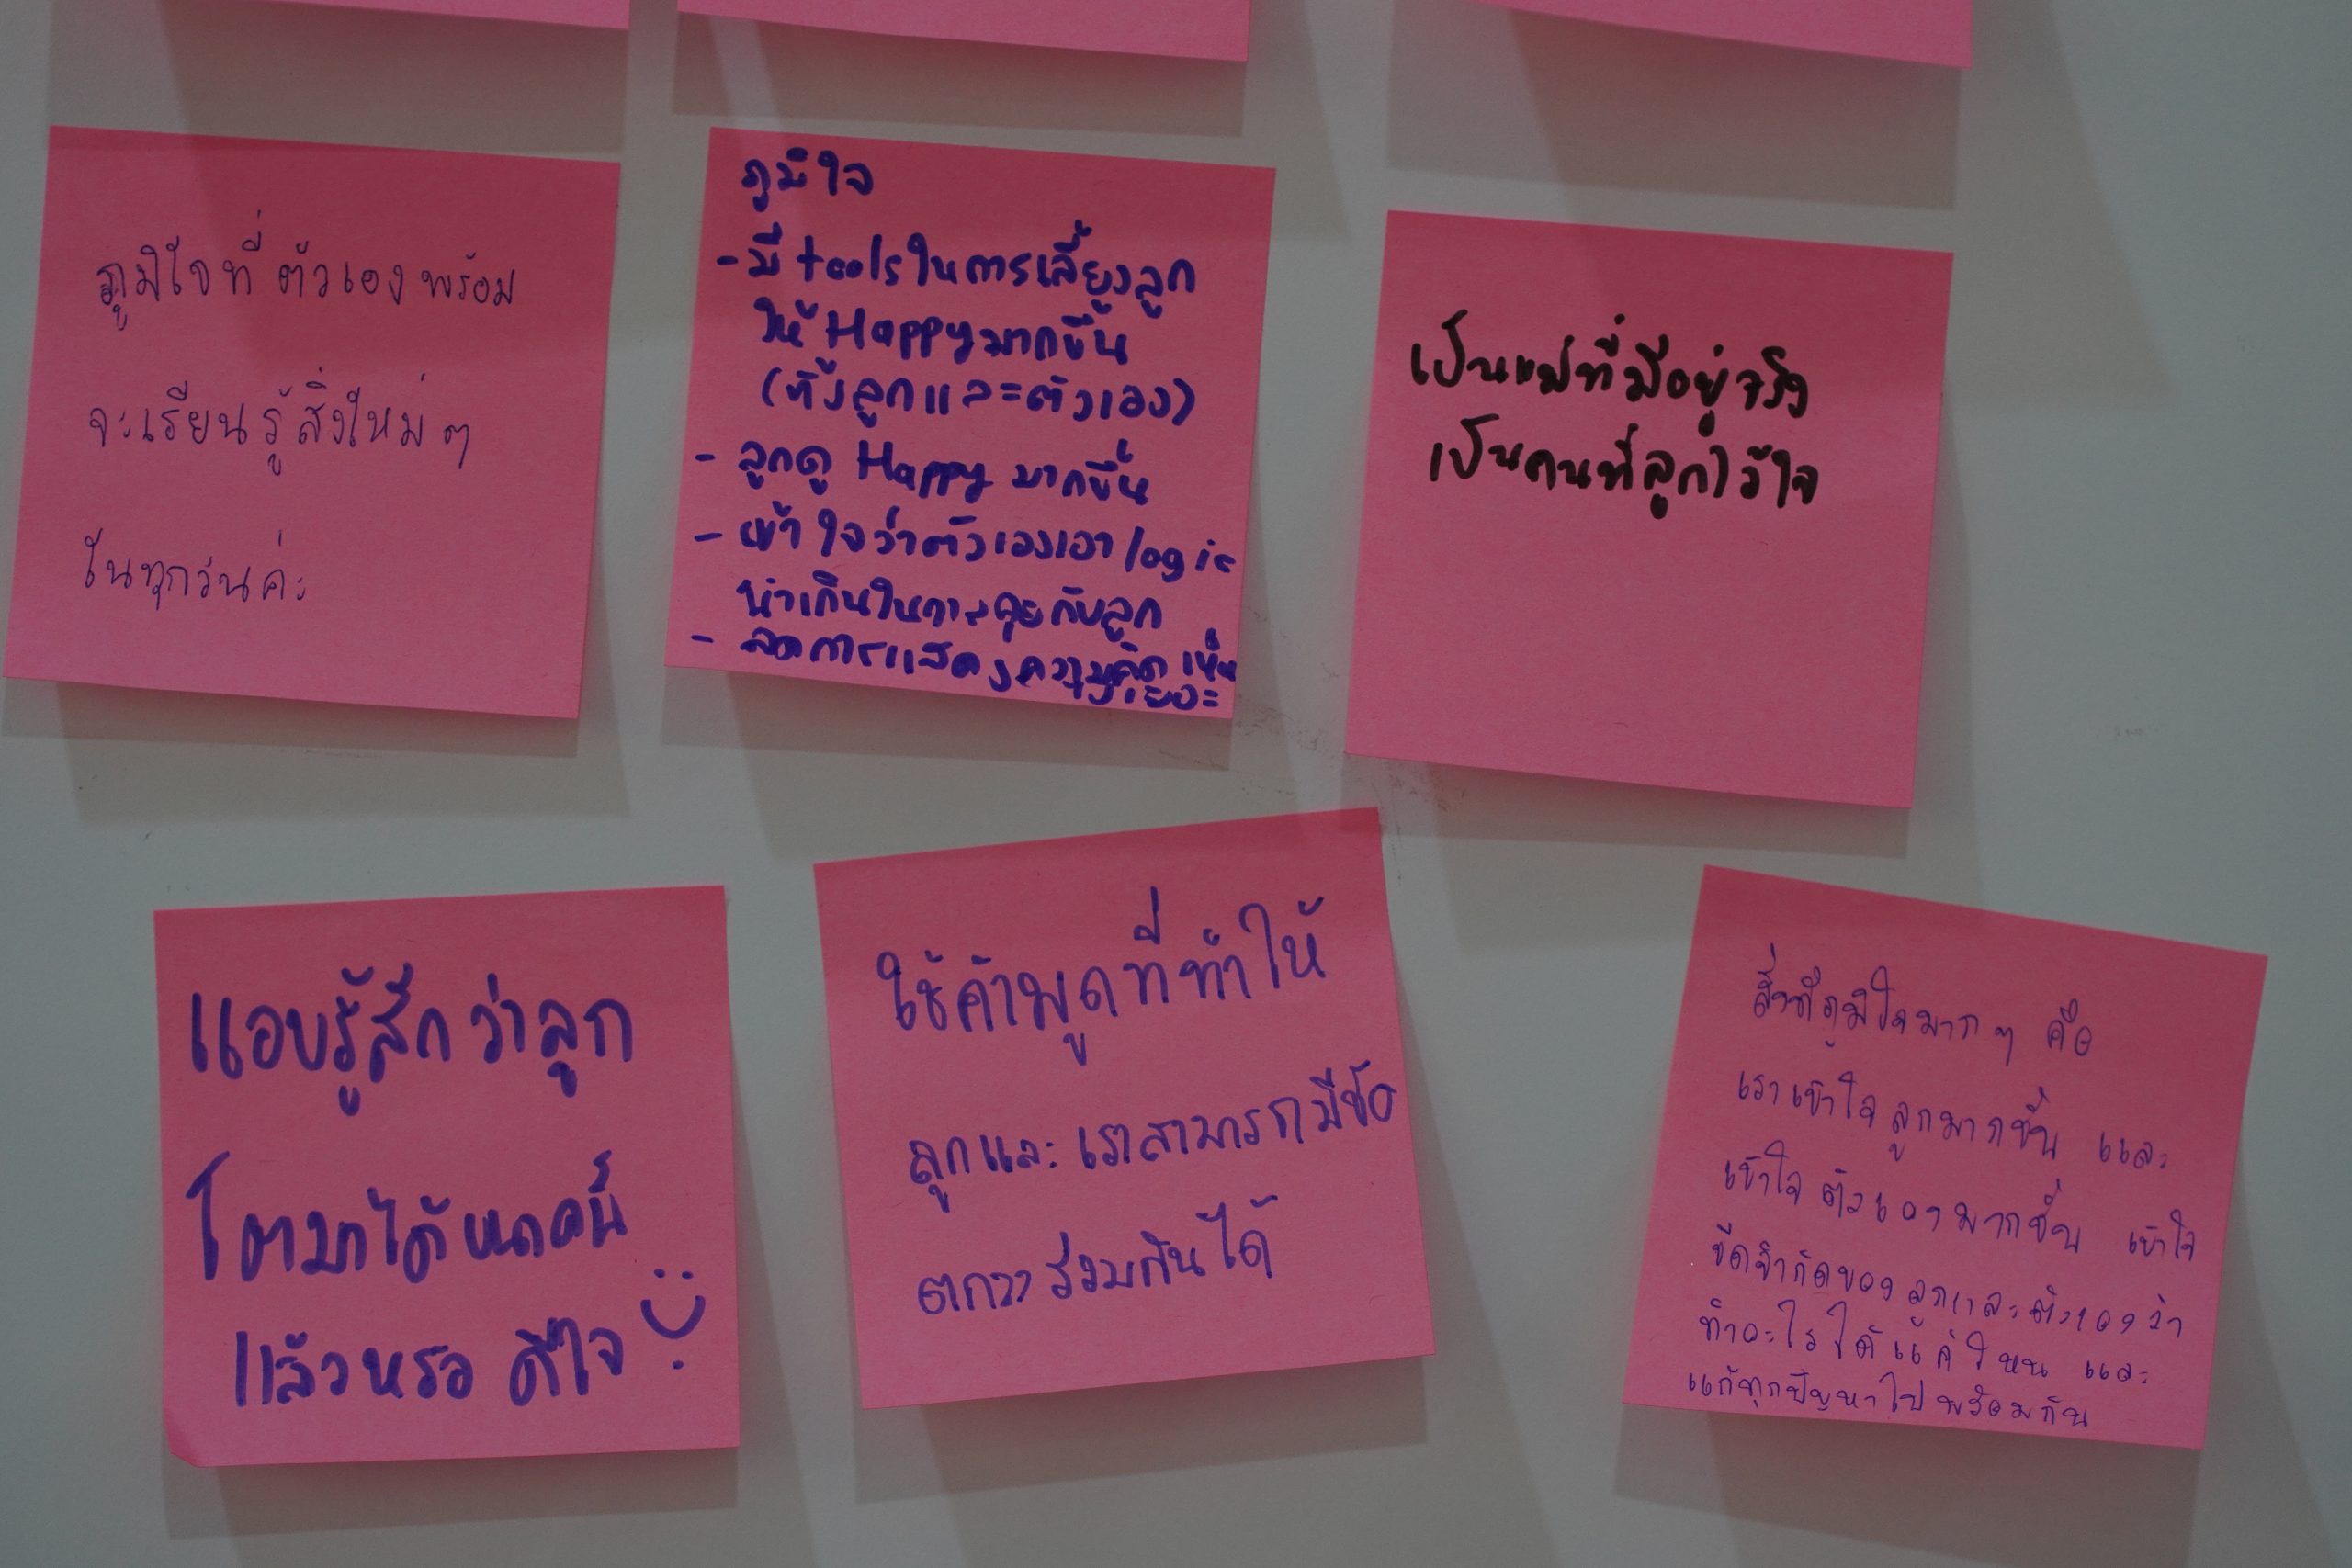 ภูมิใจที่ ตัวเองพร้อม
จะเรียนรู้สิ่งใหม่ๆ
ในทุกวันค่ะ
ภูมิใจ
- มี tools ในการเลี้ยงลูก
ให้ Happy มากขึ้น
(ทั้งลูกและตัวเอง)
- ลูกดู Happy มากขึ้น
- เข้าใจว่าตัวเองเอา logic
นำเกินในการคุยกับลูก
- ลดการแสดงความคิดเห็น
เยอะ
เป็นแม่ที่มีอยู่จริง
เป็นคนที่ลูกไว้ใจ
แอบรู้สึกว่าลูก
โตมาได้ขนาดนี้
แล้วหรอ ดีใจ
ใช้คำพูดที่ทำให้
ลูกและเราสามารถมีข้อ
ตกลงร่วมกันได้
สิ่งที่ภูมิใจมากๆ คือ
เราเข้าใจลูกมากขึ้น และ
เข้าใจตัวเองมากขึ้น เข้าใจ
ขีดจำกัดของลูกและตัวเองว่า
ทำอะไรได้แค่ไหน และ
แก้ทุกปัญหาไปพร้อมกัน